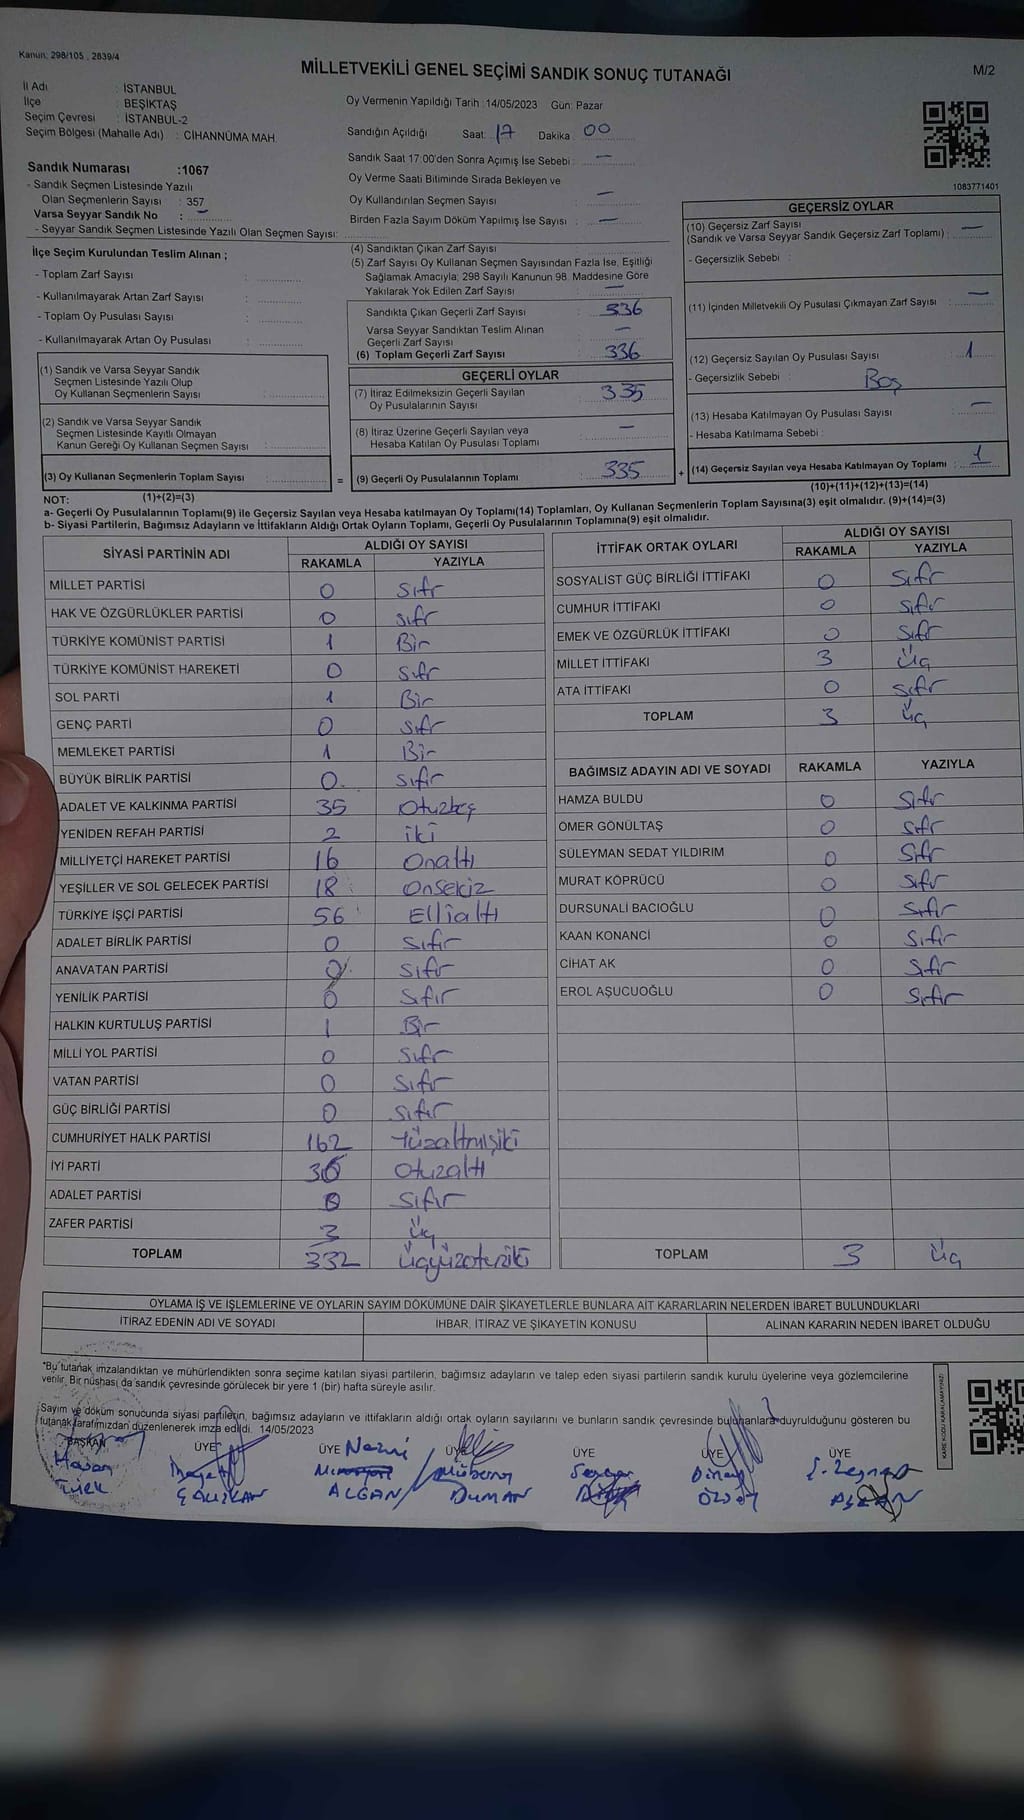 Kanun: 298/105 , 2839/4
MİLLETVEKİLİ GENEL SEÇİMİ SANDIK SONUÇ TUTANAĞI
M/2
İl Adı : İSTANBUL
İlçe : BEŞİKTAŞ
Seçim Çevresi : İSTANBUL-2
Seçim Bölgesi (Mahalle Adı) : CİHANNÜMA MAH.
Sandık Numarası :1067
- Sandık Seçmen Listesinde Yazılı
Olan Seçmenlerin Sayısı : 357
Varsa Seyyar Sandık No : –
- Seyyar Sandık Seçmen Listesinde Yazılı Olan Seçmen Sayısı:
Oy Vermenin Yapıldığı Tarih :14/05/2023 Gün: Pazar
Sandığın Açıldığı Saat: 17 Dakika 00
Sandık Saat 17:00'den Sonra Açımış İse Sebebi : –
Oy Verme Saati Bitiminde Sırada Bekleyen ve
Oy Kullandırılan Seçmen Sayısı : –
Birden Fazla Sayım Döküm Yapılmış İse Sayısı : –
1083771401
İlçe Seçim Kurulundan Teslim Alınan ;
- Toplam Zarf Sayısı :
- Kullanılmayarak Artan Zarf Sayısı :
- Toplam Oy Pusulası Sayısı :
- Kullanılmayarak Artan Oy Pusulası :
(1) Sandık ve Varsa Seyyar Sandık
Seçmen Listesinde Yazılı Olup
Oy Kullanan Seçmenlerin Sayısı :
(2) Sandık ve Varsa Seyyar Sandık
Seçmen Listesinde Kayıtlı Olmayan
Kanun Gereği Oy Kullanan Seçmen Sayısı :
(3) Oy Kullanan Seçmenlerin Toplam Sayısı :
(1)+(2)=(3)
(4) Sandıktan Çıkan Zarf Sayısı :
(5) Zarf Sayısı Oy Kullanan Seçmen Sayısından Fazla İse, Eşitliği
Sağlamak Amacıyla; 298 Sayılı Kanunun 98. Maddesine Göre
Yakılarak Yok Edilen Zarf Sayısı : –
Sandıkta Çıkan Geçerli Zarf Sayısı : 336
Varsa Seyyar Sandıktan Teslim Alınan
Geçerli Zarf Sayısı : –
(6) Toplam Geçerli Zarf Sayısı : 336
GEÇERLİ OYLAR
(7) İtiraz Edilmeksizin Geçerli Sayılan
Oy Pusulalarının Sayısı : 335
(8) İtiraz Üzerine Geçerli Sayılan veya
Hesaba Katılan Oy Pusulası Toplamı : –
= (9) Geçerli Oy Pusulalarının Toplamı : 335
GEÇERSİZ OYLAR
(10) Geçersiz Zarf Sayısı
(Sandık ve Varsa Seyyar Sandık Geçersiz Zarf Toplamı) : –
- Geçersizlik Sebebi :
(11) İçinden Milletvekili Oy Pusulası Çıkmayan Zarf Sayısı : –
(12) Geçersiz Sayılan Oy Pusulası Sayısı : 1
- Geçersizlik Sebebi : Boş
(13) Hesaba Katılmayan Oy Pusulası Sayısı : –
- Hesaba Katılmama Sebebi :
+ (14) Geçersiz Sayılan veya Hesaba Katılmayan Oy Toplamı : 1
(10)+(11)+(12)+(13)=(14)
NOT:
a- Geçerli Oy Pusulaları Toplamı(9) ile Geçersiz Sayılan veya Hesaba katılmayan Oy Toplamı(14) Toplamları, Oy Kullanan Seçmenlerin Toplam Sayısına(3) eşit olmalıdır. (9)+(14)=(3)
b- Siyasi Partilerin, Bağımsız Adayların ve İttifakların Aldığı Ortak Oyların Toplamı, Geçerli Oy Pusulalarının Toplamına(9) eşit olmalıdır.
SİYASİ PARTİNİN ADI ALDIĞI OY SAYISI
RAKAMLA YAZIYLA
MİLLET PARTİSİ 0 Sıfır
HAK VE ÖZGÜRLÜKLER PARTİSİ 0 Sıfır
TÜRKİYE KOMÜNİST PARTİSİ 1 Bir
TÜRKİYE KOMÜNİST HAREKETİ 0 Sıfır
SOL PARTİ 1 Bir
GENÇ PARTİ 0 Sıfır
MEMLEKET PARTİSİ 1 Bir
BÜYÜK BİRLİK PARTİSİ 0 Sıfır
ADALET VE KALKINMA PARTİSİ 35 Otuzbeş
YENİDEN REFAH PARTİSİ 2 iki
MİLLİYETÇİ HAREKET PARTİSİ 16 Onaltı
YEŞİLLER VE SOL GELECEK PARTİSİ 18 Onsekiz
TÜRKİYE İŞÇİ PARTİSİ 56 Ellialtı
ADALET BİRLİK PARTİSİ 0 Sıfır
ANAVATAN PARTİSİ 0 Sıfır
YENİLİK PARTİSİ 0 Sıfır
HALKIN KURTULUŞ PARTİSİ 1 Bir
MİLLİ YOL PARTİSİ 0 Sıfır
VATAN PARTİSİ 0 Sıfır
GÜÇ BİRLİĞİ PARTİSİ 0 Sıfır
CUMHURİYET HALK PARTİSİ 162 Yüzaltmışiki
İYİ PARTİ 36 Otuzaltı
ADALET PARTİSİ 0 Sıfır
ZAFER PARTİSİ 3 Üç
TOPLAM 332 Üçyüzotuziki
İTTİFAK ORTAK OYLARI ALDIĞI OY SAYISI
RAKAMLA YAZIYLA
SOSYALİST GÜÇ BİRLİĞİ İTTİFAKI 0 Sıfır
CUMHUR İTTİFAKI 0 Sıfır
EMEK VE ÖZGÜRLÜK İTTİFAKI 0 Sıfır
MİLLET İTTİFAKI 3 Üç
ATA İTTİFAKI 0 Sıfır
TOPLAM 3 Üç
BAĞIMSIZ ADAYIN ADI VE SOYADI RAKAMLA YAZIYLA
HAMZA BULDU 0 Sıfır
ÖMER GÖNÜLTAŞ 0 Sıfır
SÜLEYMAN SEDAT YILDIRIM 0 Sıfır
MURAT KÖPRÜCÜ 0 Sıfır
DURSUNALİ BACIOĞLU 0 Sıfır
KAAN KONANCİ 0 Sıfır
CİHAT AK 0 Sıfır
EROL AŞUCUOĞLU 0 Sıfır
TOPLAM 3 Üç
OYLAMA İŞ VE İŞLEMLERİNE VE OYLARIN SAYIM DÖKÜMÜNE DAİR ŞİKAYETLERLE BUNLARA AİT KARARLARIN NELERDEN İBARET BULUNDUKLARI
İTİRAZ EDENİN ADI VE SOYADI İHBAR, İTİRAZ VE ŞİKAYETİN KONUSU ALINAN KARARIN NEDEN İBARET OLDUĞU
*Bu tutanak imzalandıktan ve mühürlendikten sonra seçime katılan siyasi partilerin, bağımsız adayların ve talep eden siyasi partilerin sandık kurulu üyelerine veya gözlemcilerine
verilir. Bir nüshası da sandık çevresinde görülecek bir yere 1 (bir) hafta süreyle asılır.
Sayım ve döküm sonucunda siyasi partilerin, bağımsız adayların ve ittifakların aldığı ortak oyların sayılarını ve bunların sandık çevresinde bulunanlara duyrulduğunu gösteren bu
tutanak tarafımızdan düzenlenerek imza edildi. 14/05/2023
BAŞKAN ÜYE ÜYE ÜYE ÜYE ÜYE ÜYE
Hasan Nazmi
ÇALIŞKAN ALGAN DUMAN
KARE KODU KARALAMAYINIZ!